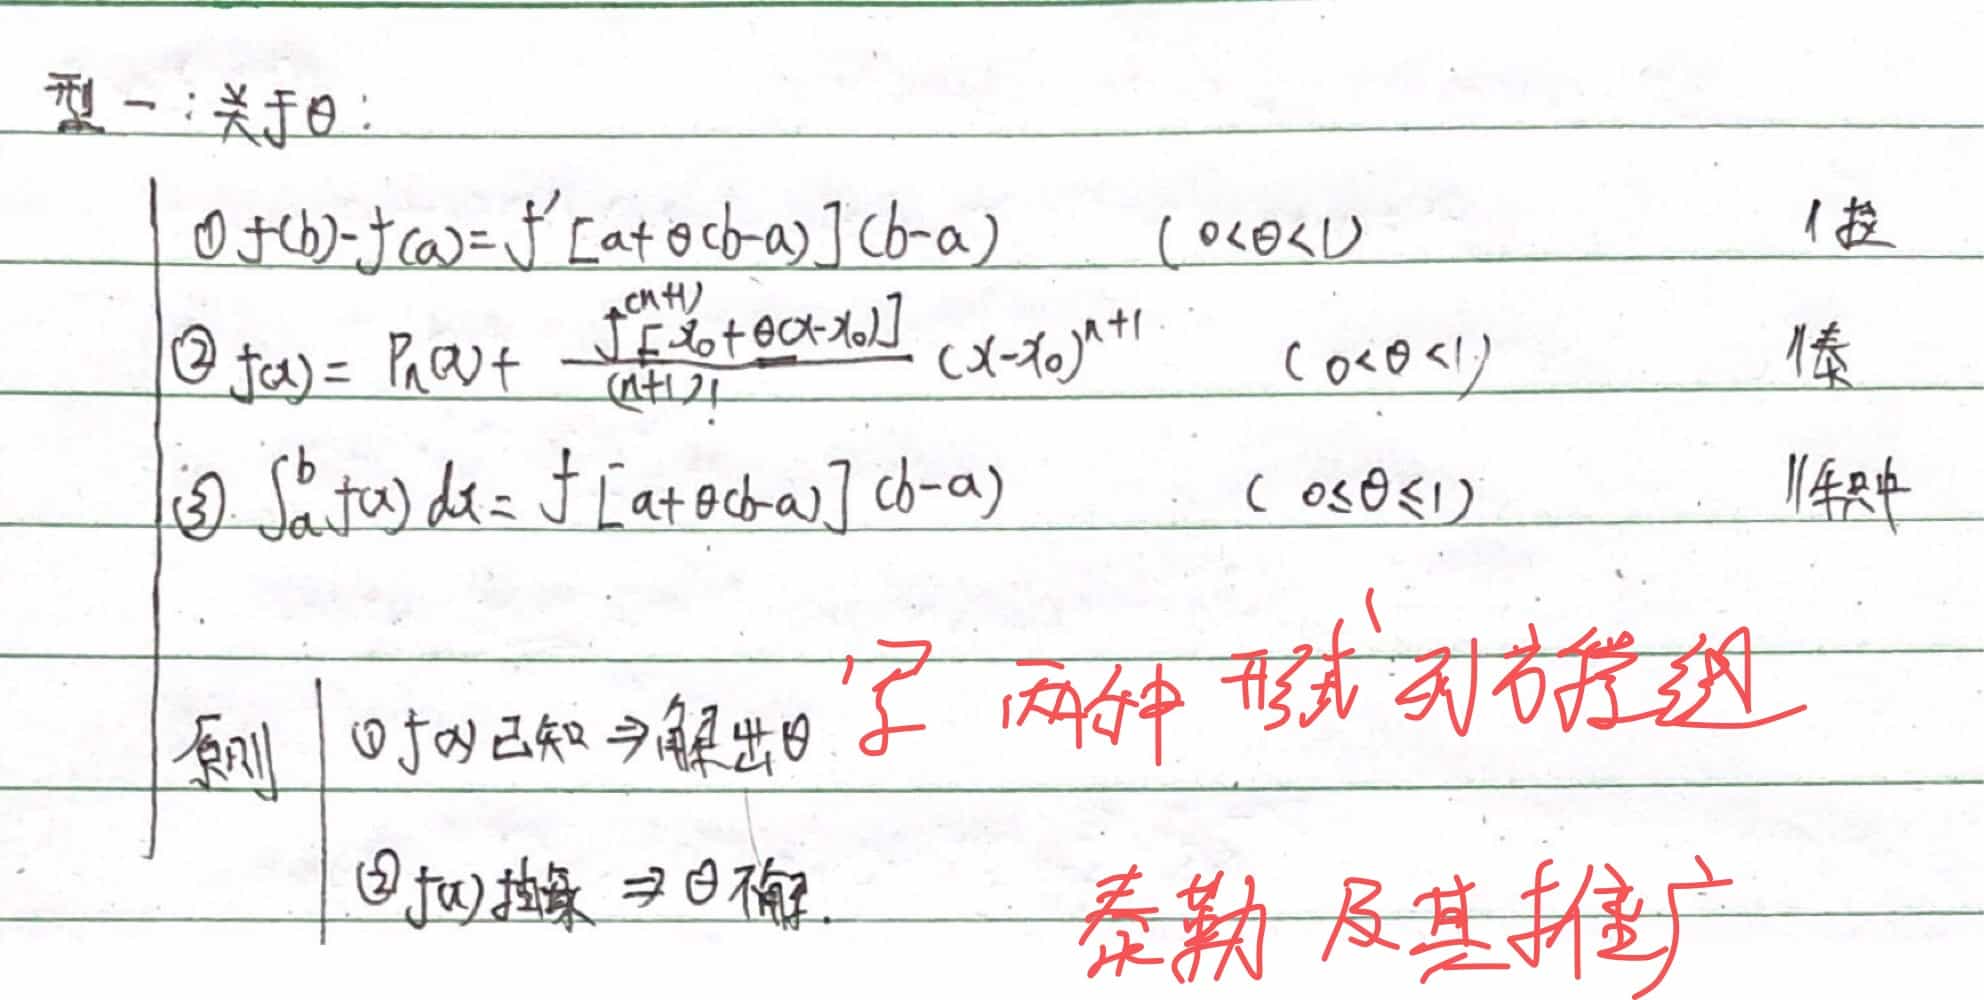 型一：关于θ：
① f(b)-f(a)=f'[a+θ(b-a)](b-a) (0<θ<1) //拉
② f(x)= Pn(x)+ f^(n+1)[x₀+θ(x-x₀)]/(n+1)! (x-x₀)^(n+1) (0<θ<1) //泰
③ ∫_a^b f(x)dx= f[a+θ(b-a)](b-a) (0≤θ≤1) //积中
原则 ① f(x)已知⇒解出θ 写两种形式 列方程组
② f(x)抽象 ⇒ θ不解. 泰勒及其推广